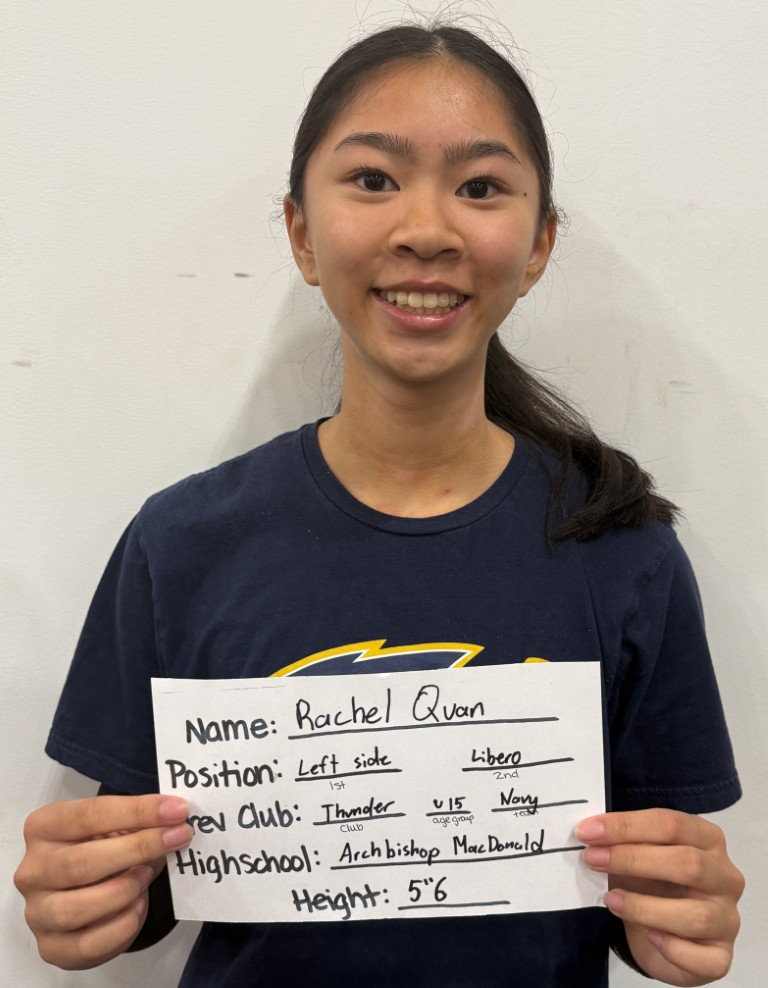 Name: Rachel Quan
Position: Left side Libero
1st 2nd
rev Club: Thunder U15 Navy
Club age group team
Highschool: Archbishop MacDonald
Height: 5"6